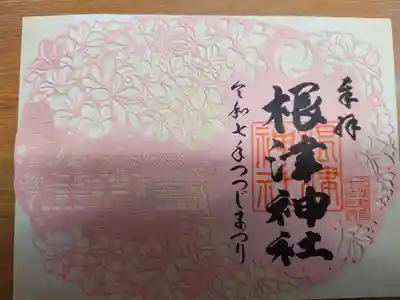 奉拝
根津神社
令和七年つつじまつり